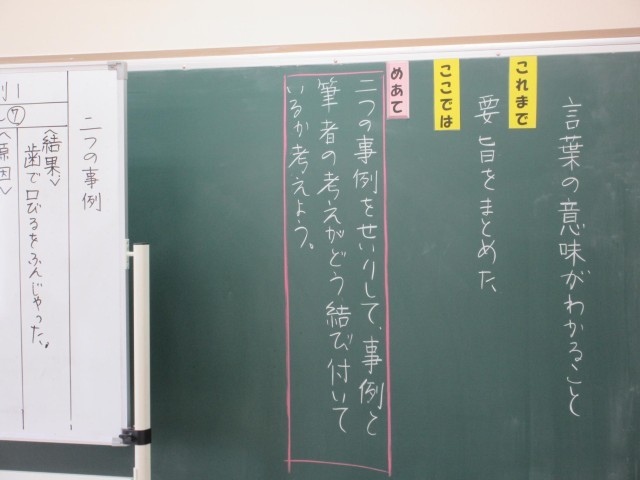 言葉の意味がわかること
これまで
要旨をまとめた
ここでは
めあて
二つの事例をせいりして、事例と
筆者の考えがどう結び付いて
いるか考えよう。
二つの事例
<結果>
歯で口びるをふんじゃった。
例1
⑦
<原因>